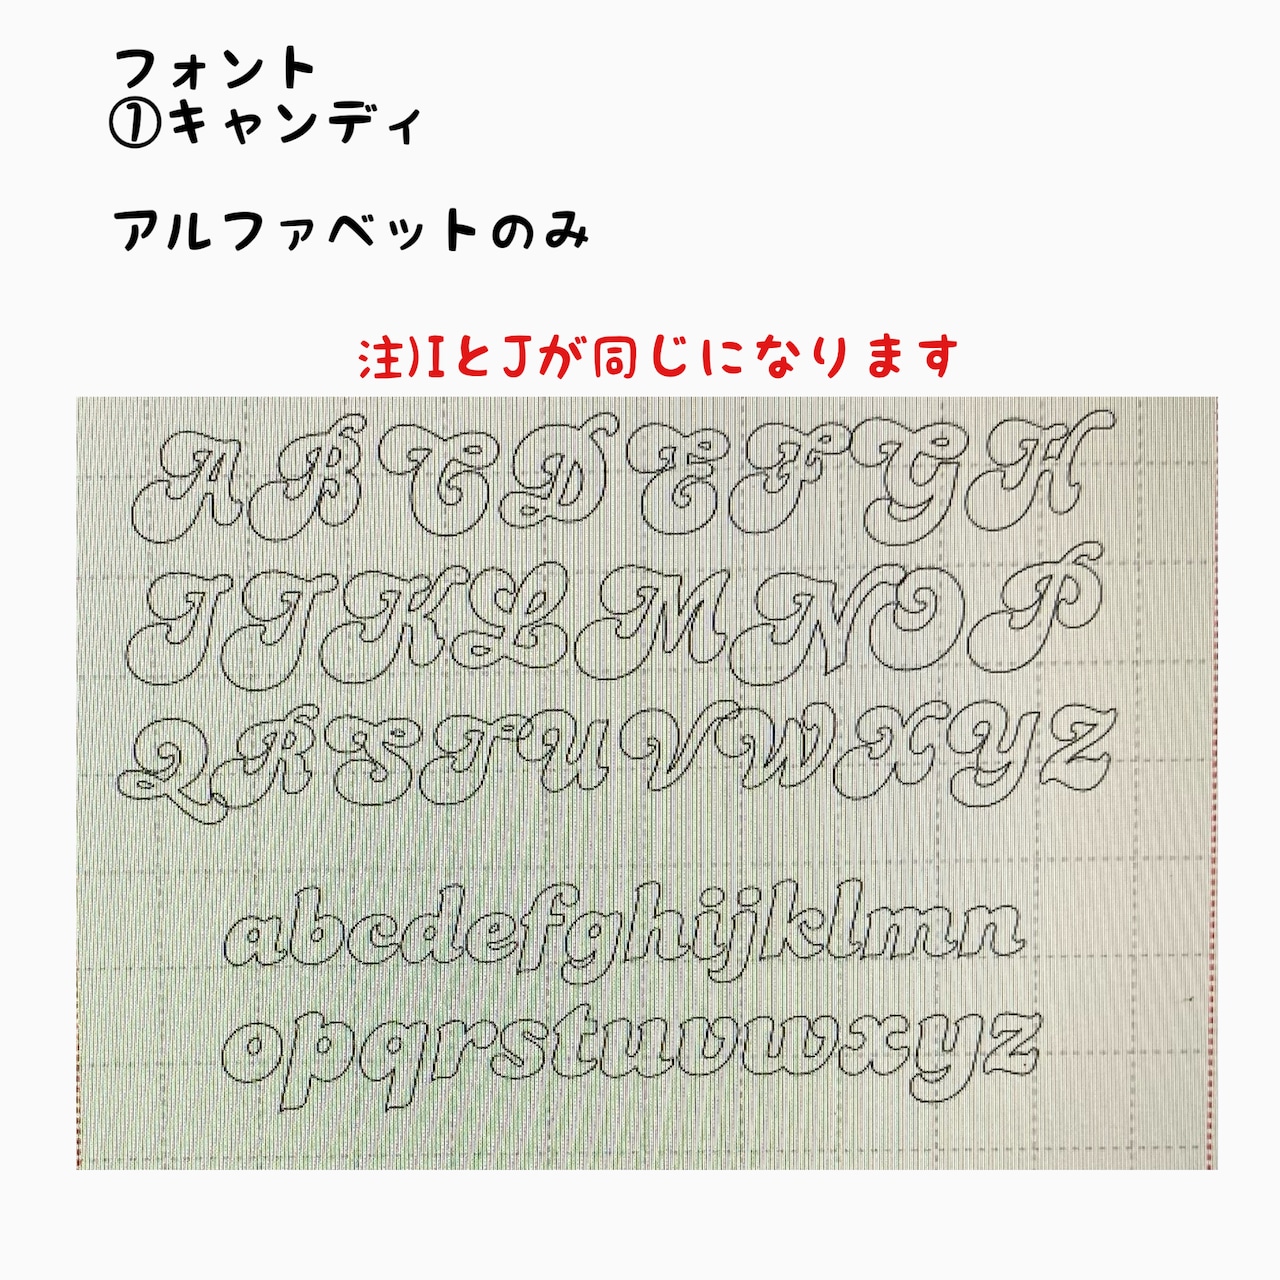 フォント
①キャンディ
アルファベットのみ
注)IとJが同じになります
ABCDEFGH
IJKLMNOP
QRSTUVWXYZ
abcdefghijklmn
opqrstuvwxyz